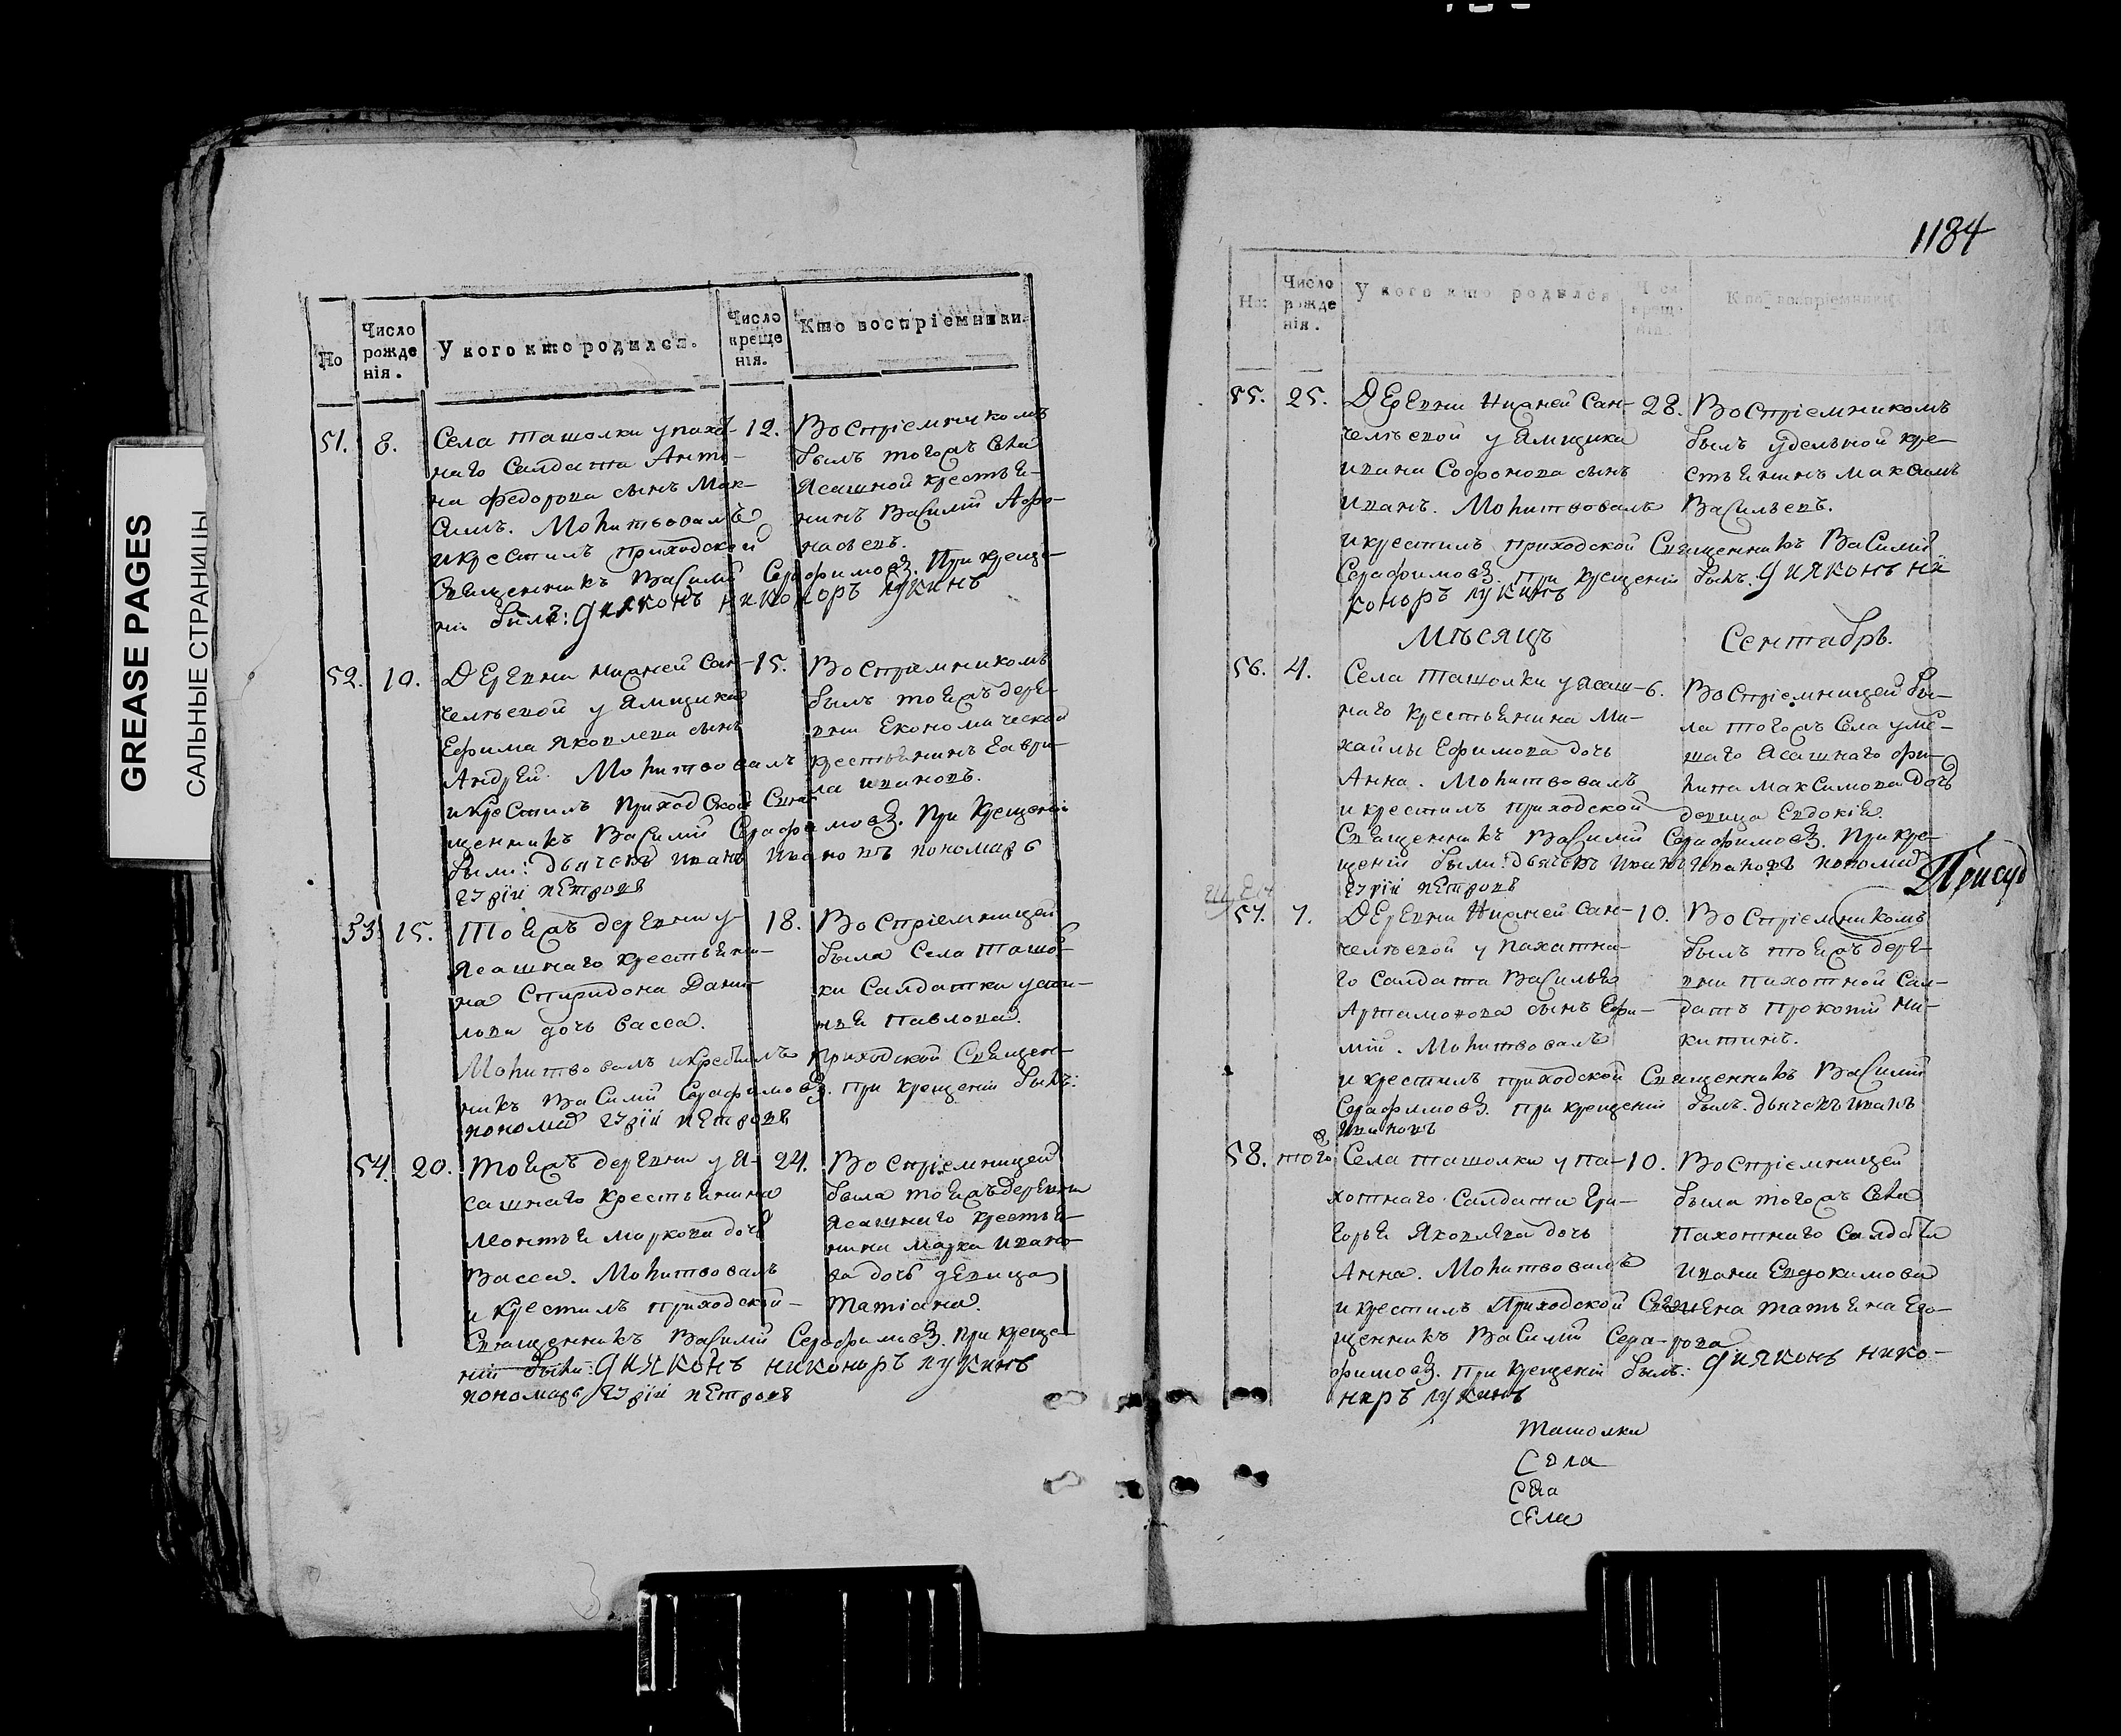 GREASE PAGES
САЛЬНЫЕ СТРАНИЦЫ
Но
Число рожденія.
У кого кто родился.
Число крещенія.
Кто воспріемники.
51. 8. Села Ташолки у пахат- 12.
наго Салдата Анто-
на Федорова сынъ Мак-
симъ. Молитвовалъ
и крестилъ приходской
Священникъ Василій Серафимовъ. При креще-
ніи былъ: диаконъ никоноръ лукинъ
Воспріемникомъ
былъ тогожъ Села
Ясашной крестья-
нинъ Василій Афо-
насьевъ.
52. 10. Деревни Нижней Сан- 15.
челѣевой у Ямщика
Ефима Яковлева сынъ
Андрей. Молитвовалъ
и крестилъ приходской Свя-
щенникъ Василій Серафимовъ. При крещеніи
были: дьячекъ иванъ ивановъ пономарь
гурій петровъ
Воспріемникомъ
былъ тоежъ дере-
вни Економической
крестьянинъ Гаври-
ла ивановъ.
53. 15. Тоежъ деревни у 18.
Ясашнаго крестьяни-
на Спиридона Дани-
лова дочь Васса.
Молитвовалъ и крестилъ приходской Священ-
никъ Василій Серафимовъ. при крещеніи былъ:
пономарь гурій петровъ
Воспріемницей
была Села Ташол-
ки Салдатки усти-
ньи Павлова.
54. 20. Тоежъ деревни у Я- 24.
сашнаго крестьянина
Леонтья Маркова дочь
Васса. Молитвовалъ
и крестилъ приходской
Священникъ Василій Серафимовъ. при креще-
ніи были: диаконъ никоноръ лукинъ
пономарь гурій петровъ
Воспріемницей
была тоежъ деревни
Ясашнаго крестья-
нина Марка ивано-
ва дочь девица
Татіана.
1184
Но:
Число рожденія.
У кого кто родился
Кто воспріемники
55. 25. Деревни Нижней Сан- 28.
челѣевой у Ямщика
ивана Софонова сынъ
иванъ. Молитвовалъ
и крестилъ приходской Священникъ Василій
Серафимовъ. При крещеніи былъ. диаконъ ни
коноръ лукинъ
Воспріемникомъ
былъ удельной кре-
стьянинъ максимъ
Васильевъ.
Мѣсяцъ Сентябрь.
56. 4. Села Ташолки у ясаш- 6.
наго крестьянина Ми-
хайлы Ефимова дочь
Анна. Молитвовалъ
и крестилъ приходской
Священникъ Василій Серафимовъ. При кре-
щеніи были: дьячекъ иванъ ивановъ пономарь
гурій петровъ
Воспріемницей бы-
ла тогожъ Села уме-
шаго Ясашнаго фи-
липа Максимова дочь
девица Евдокія.
57. 7. Деревни Нижней Сан- 10.
челѣевой у пахатна-
го Салдата Василья
Артамонова сынъ Ефи-
мій. Молитвовалъ
и крестилъ приходской Священникъ Василій
Серафимовъ. при крещеніи былъ. дьячекъ иванъ
ивановъ
Воспріемникомъ
былъ тоежъ дере-
вни пахотной Сал-
датъ Прокопій Ни-
китинъ.
58. того 8. Села Ташолки у па- 10.
хотнаго Салдата Гри-
горья Яковлева дочь
Анна. Молитвовалъ
и крестилъ Приходской Свя-
щенникъ Василій Сера-
фимовъ. При крещеніи былъ: диаконъ нико-
норъ лукинъ
Воспріемницей
была тогожъ Села
Пахотнаго Салдата
ивана Евдокимова
жена татьяна Его-
рова
Ташолки
Села
Села
Села